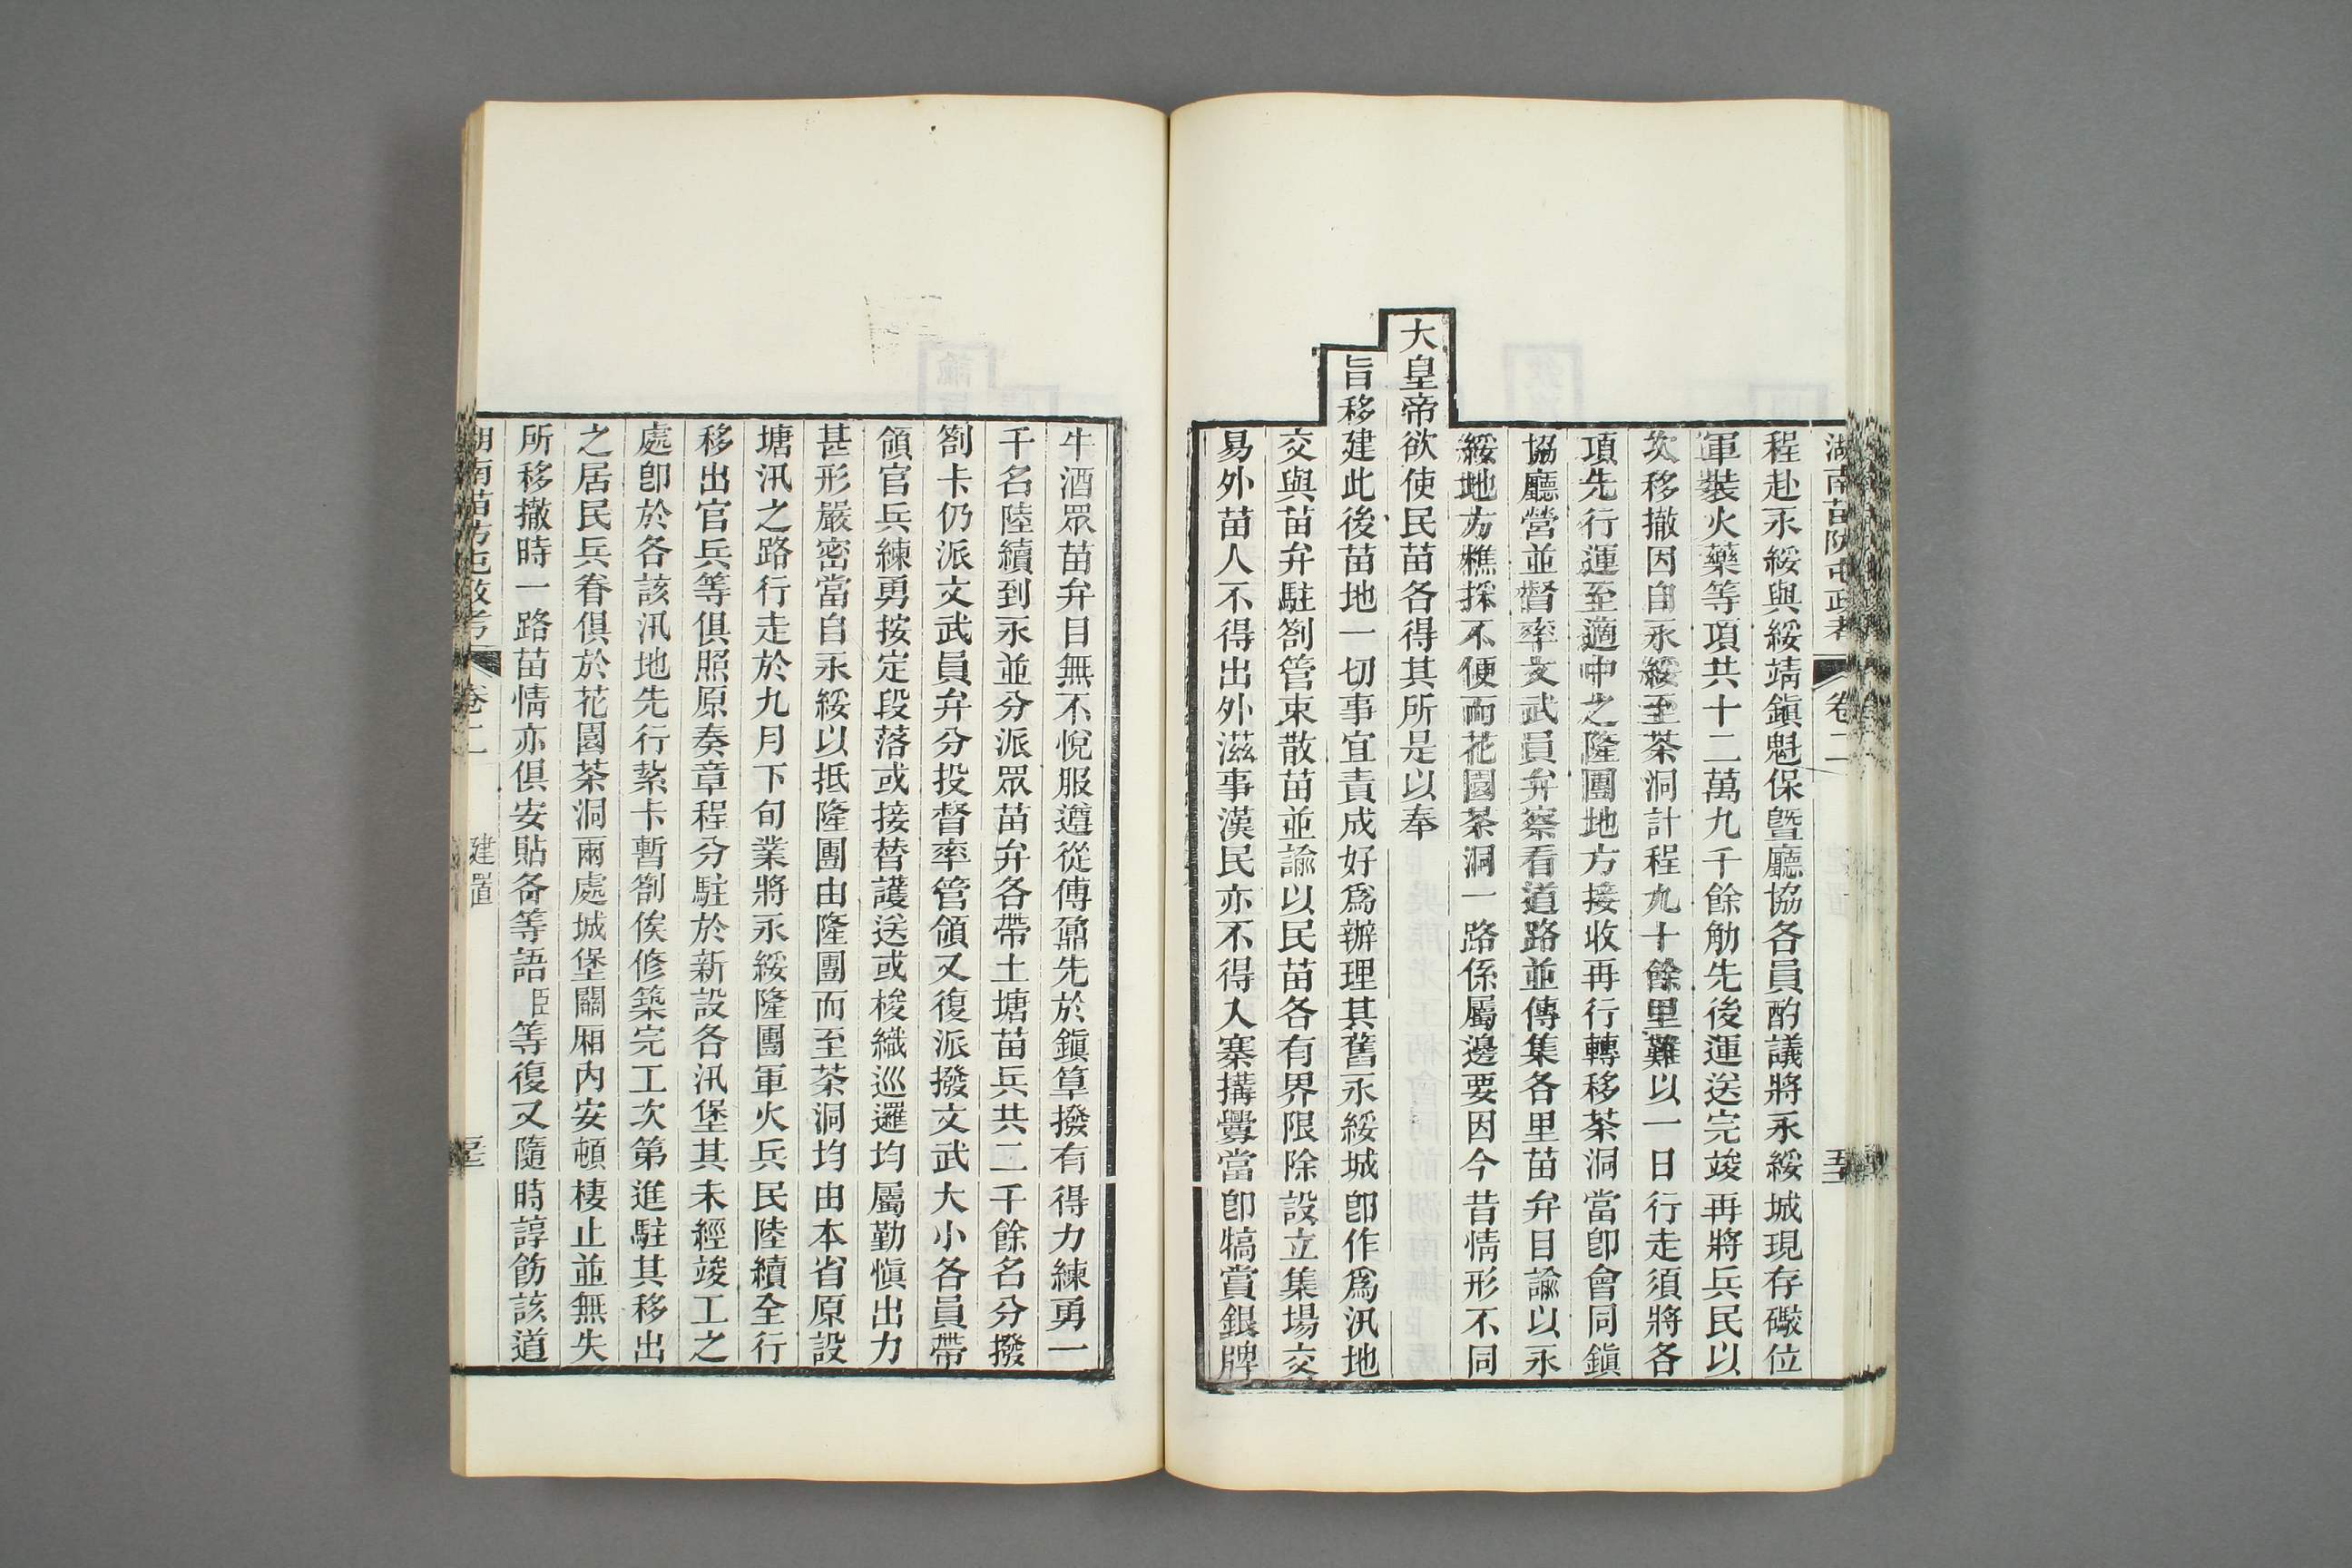 湖南苗防屯政考 卷二
程赴永綏與綏靖鎭魁保曁廳協各員酌議將永綏城現存礮位
軍裝火藥等項共十二萬九千餘觔先後運送完竣再將兵民以
次移撤因自永綏至茶洞計程九十餘里難以一日行走須將各
項先行運至適中之隆團地方接收再行轉移茶洞當卽會同鎭
協廳營並督率文武員弁察看道路並傳集各里苗弁目諭以永
綏地方樵採不便而花園茶洞一路係屬邊要因今昔情形不同
大皇帝欲使民苗各得其所是以奉
旨移建此後苗地一切事宜責成好爲辦理其舊永綏城卽作爲汛地
交與苗弁駐劄管束散苗並諭以民苗各有界限除設立集場交
易外苗人不得出外滋事漢民亦不得入寨搆釁當卽犒賞銀牌
牛酒眾苗弁目無不悅服遵從傅鼐先於鎭筸撥有得力練勇一
千名陸續到永並分派眾苗弁各帶土塘苗兵共二千餘名分撥
劄卡仍派文武員弁分投督率管領又復派撥文武大小各員帶
領官兵練勇按定段落或接替護送或梭織巡邏均屬勤愼出力
甚形嚴密當自永綏以抵隆團由隆團而至茶洞均由本省原設
塘汛之路行走於九月下旬業將永綏隆團軍火兵民陸續全行
移出官兵等俱照原奏章程分駐於新設各汛堡其未經竣工之
處卽於各該汛地先行紮卡暫劄俟修築完工次第進駐其移出
之居民兵眷俱於花園茶洞兩處城堡關廂內安頓棲止並無失
所移撤時一路苗情亦俱安貼各等語臣等復又隨時諄飭該道
湖南苗防屯政考 卷二 建置